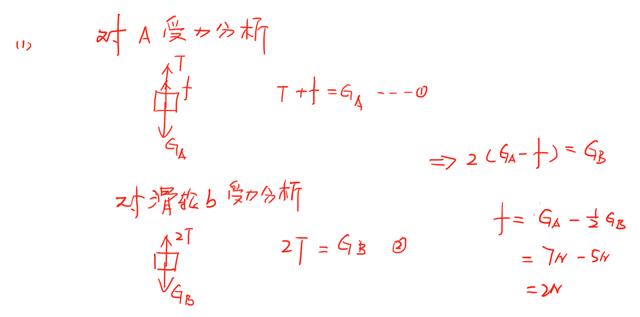 (1) 对A受力分析
T
f
G_A
T+f=G_A ---①
⇒ 2(G_A-f)=G_B
对滑轮b受力分析
2T
G_B
2T=G_B ②
f=G_A-½G_B
=7N-5N
=2N